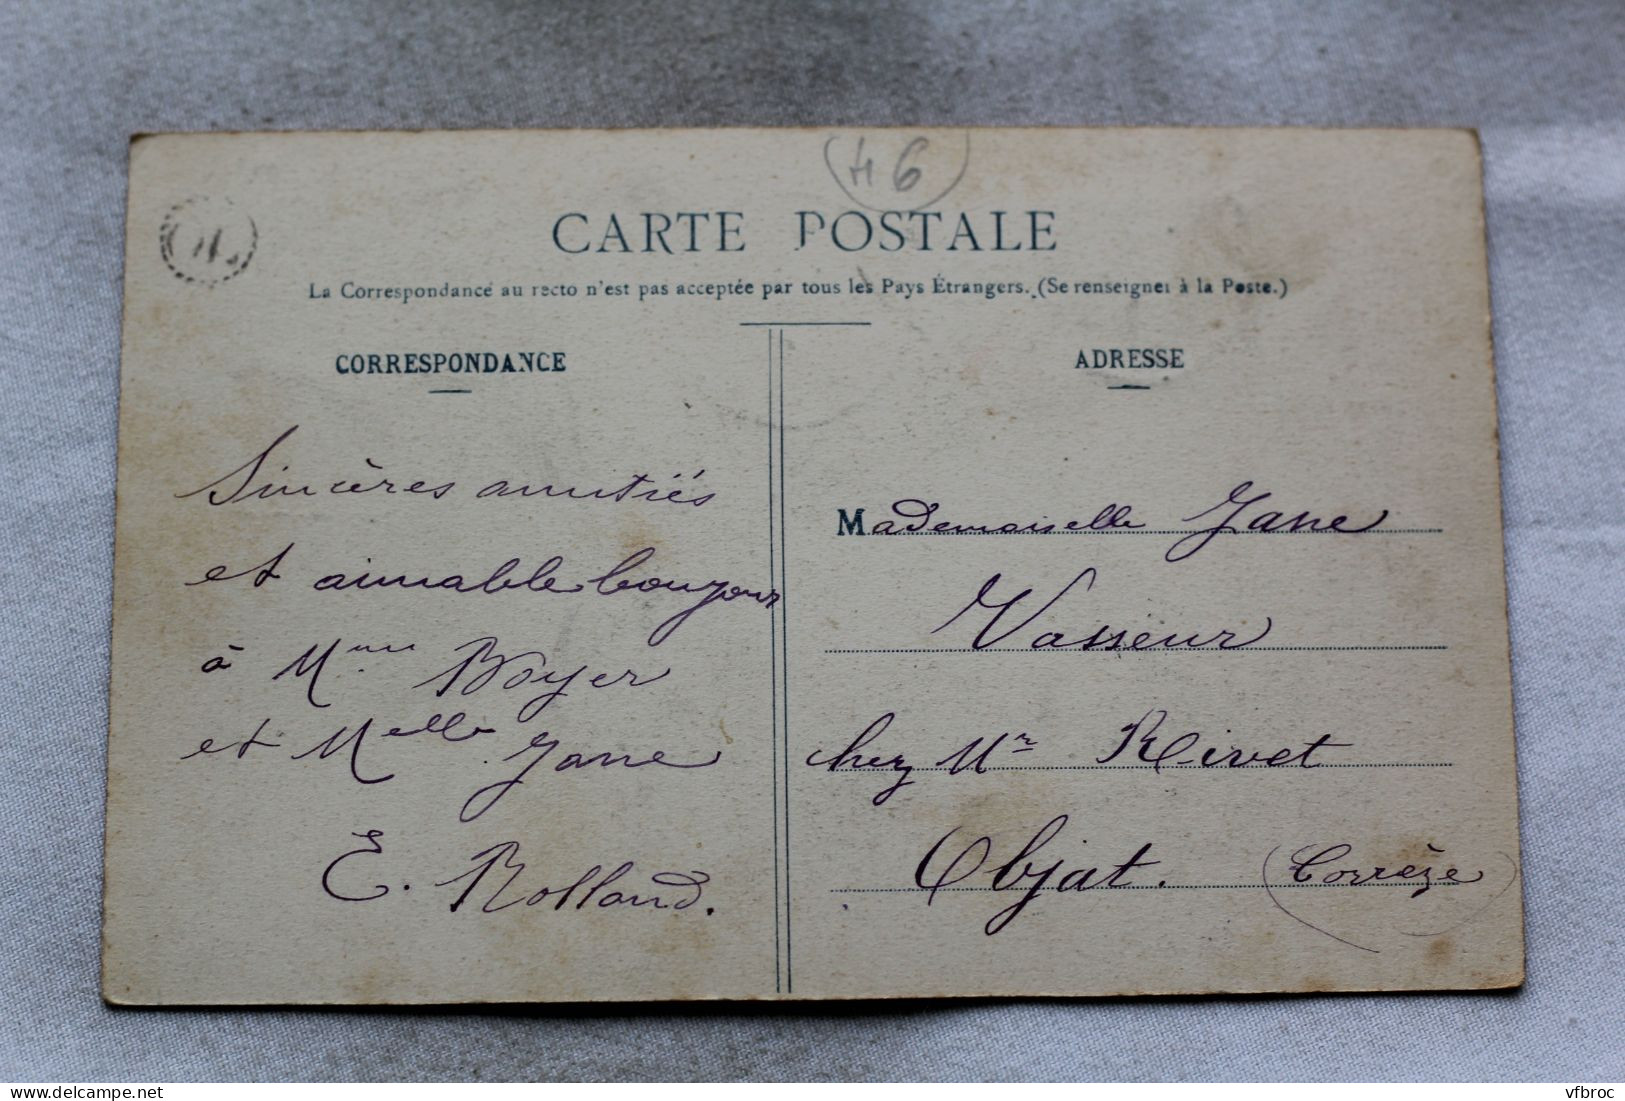 46
CARTE POSTALE
La Correspondance au recto n'est pas acceptée par tous les Pays Étrangers. (Se renseigner à la Poste.)
CORRESPONDANCE
Sincères amitiés
et aimable bonjour
à Mme Boyer
et Melle Jane
E. Rolland.
ADRESSE
Mademoiselle Jane
Vasseur
chez Mr Rivet
Objat. (Corrèze)
delcampe.net
vfbroc